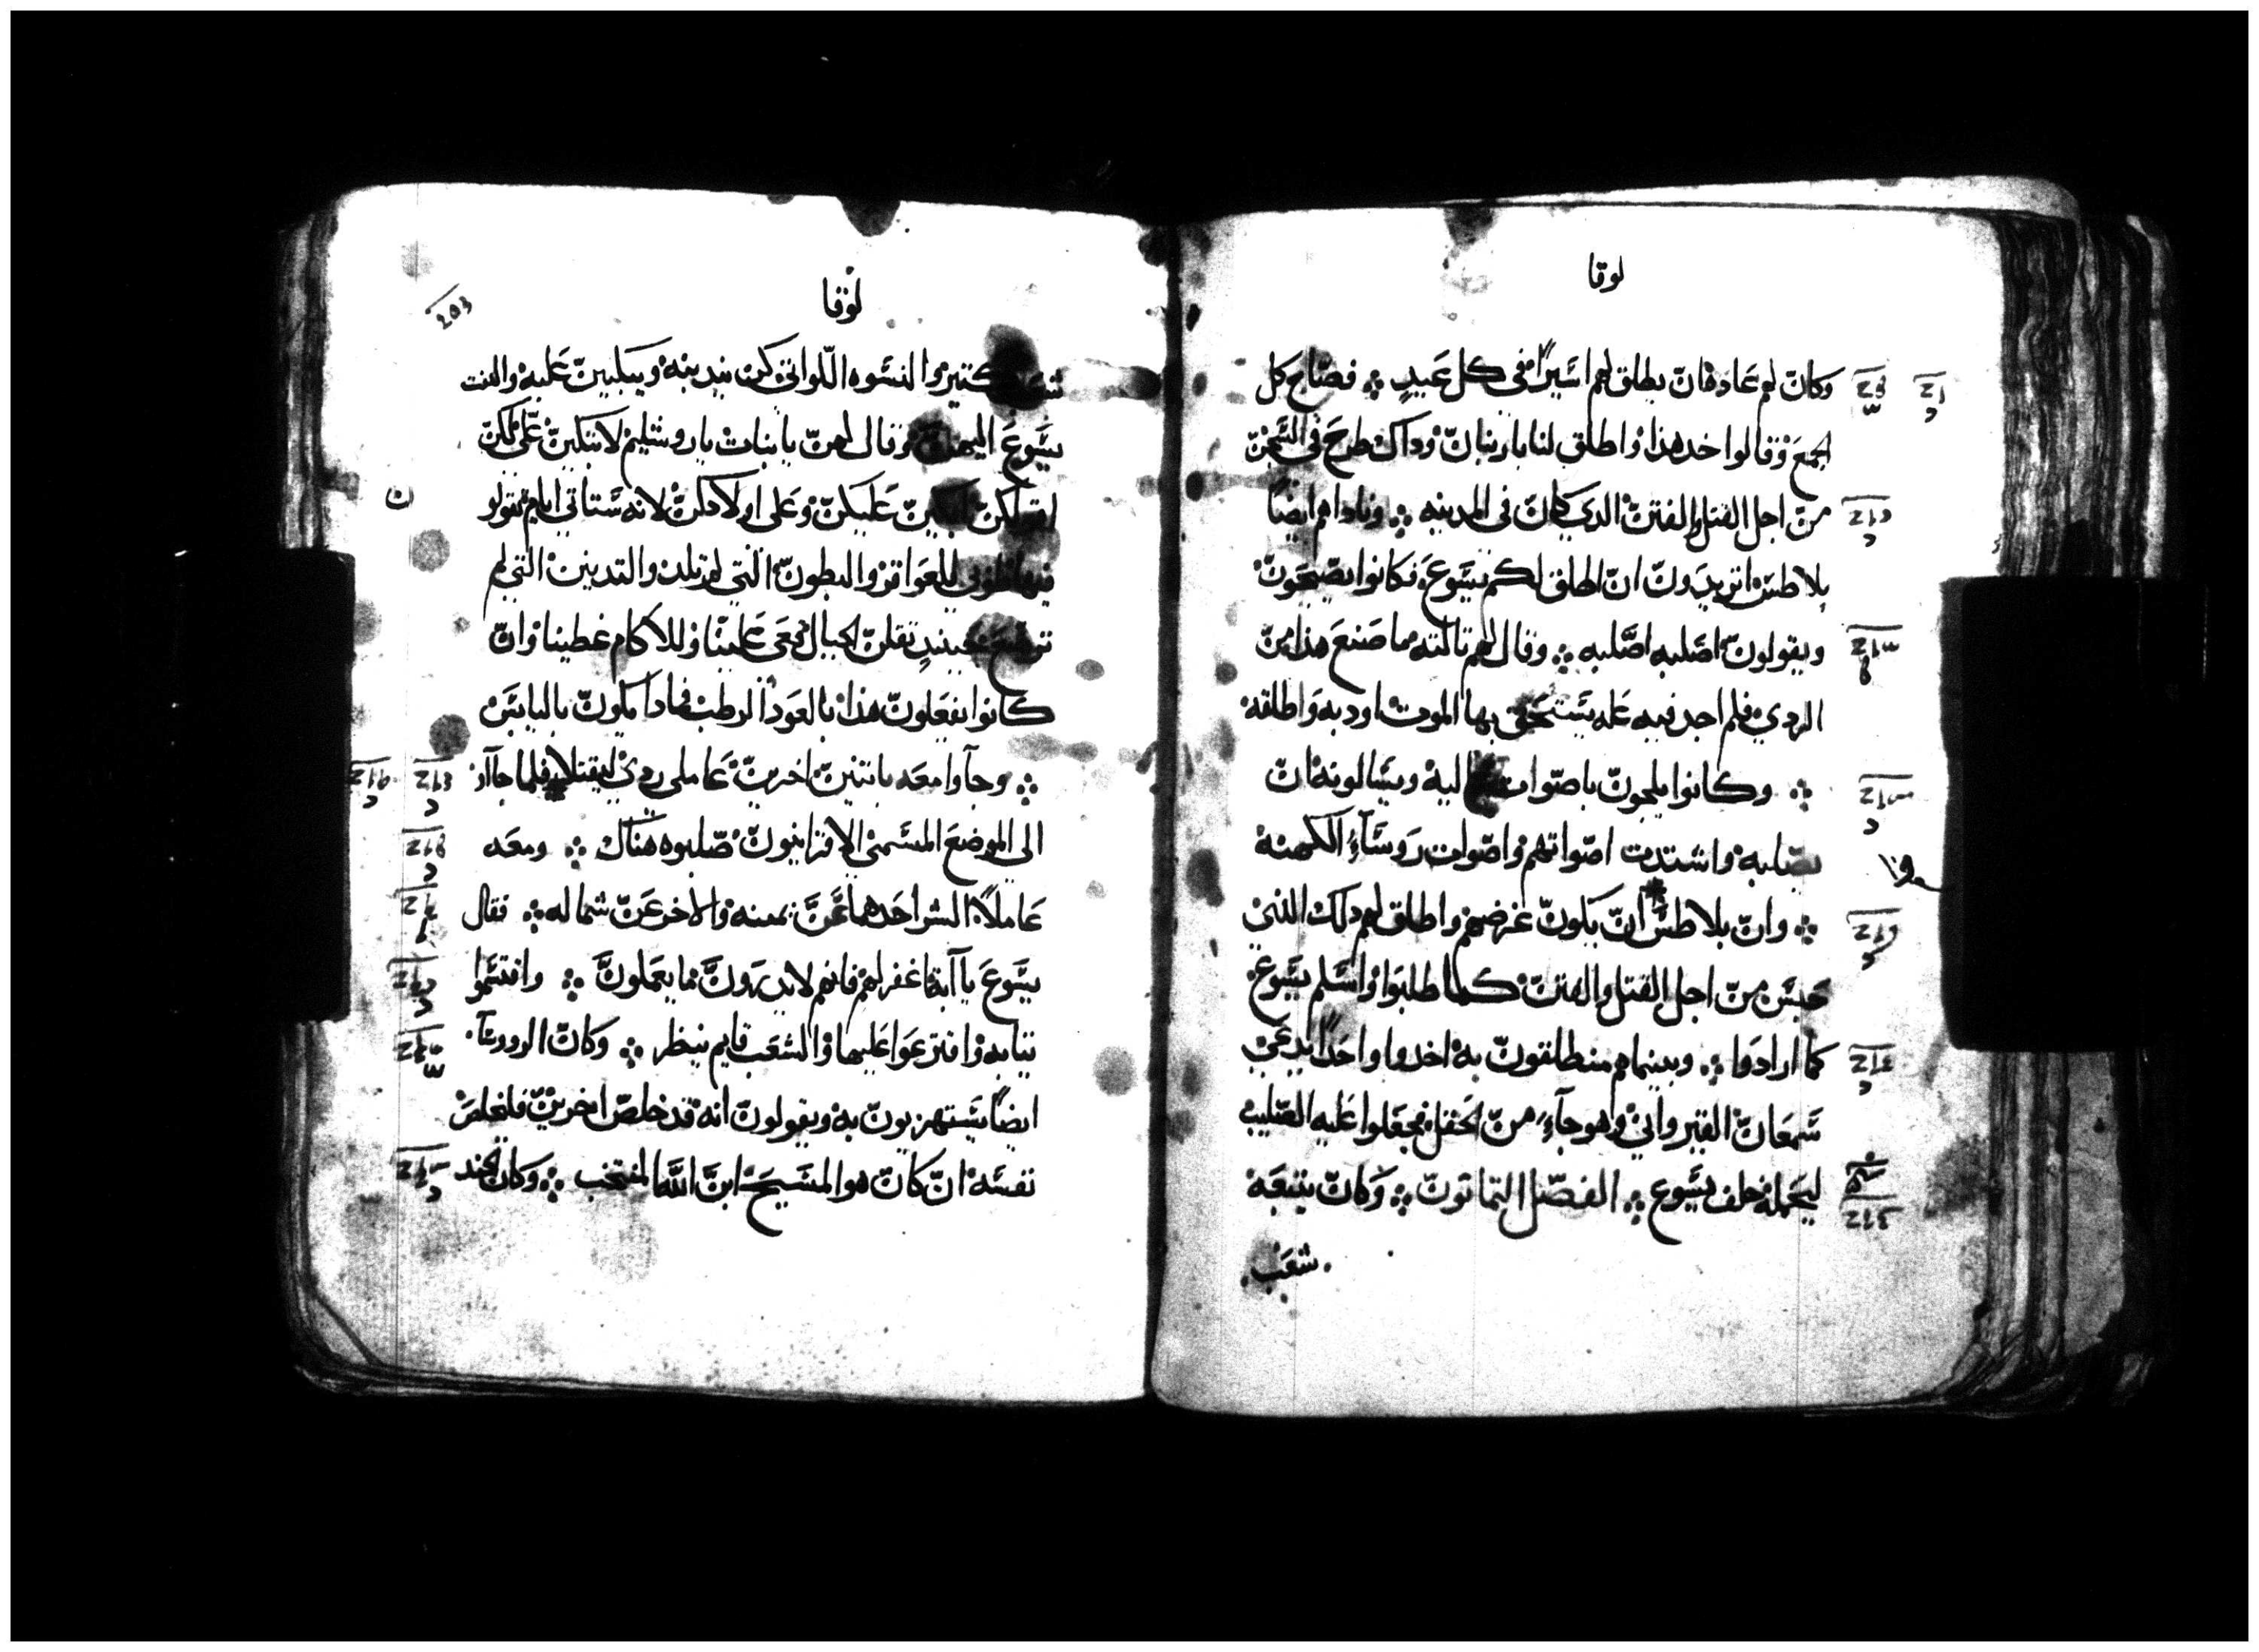 لوقا
وكان لهم عاده ان يطلق لهم اسيرا في كل عيد ܀ فصاح كل
الجمع وقالوا خد هذا واطلق لنا باربنان وداك طرح في السجن
من اجل القتل والفتن الدي كان في المدينه ܀ وناداهم ايضا
بلاطس اتريدون ان اطلق لكم يسوع فكانوا يصيحون
ويقولون اصلبه اصلبه ܀ وقال لهم تالته ما صنع هذا من
الردي فلم اجد فيه عله يستحق بها الموت اودبه واطلقه
܀ وكانوا يلجون باصوات اليه ويسالونه ان
يصلبه واشتدت اصواتهم واصوات روساء الكهنه
܀ وان بلاطس ان يكون غرضهم واطلق لهم دلك الذي
حبس من اجل القتل والفتن كما طلبوا واسلم يسوع
كما ارادوا ܀ وبينما هم منطلقون به اخدوا واحدا يدعي
سمعان القيرواني وهو جاء من الحقل فجعلوا عليه الصليب
ليحمله خلف يسوع ܀ الفصل التمانون ܀ وكان يتبعه
شعب
لوقا
203
كتير والنسوه اللواتي كن يندبنه ويبكين عليه والتفت
يسوع اليهن وقال لهن يا بنات ياروشليم لا تبكين علي لكن
ابكين عليكن وعلى اولادكن لانه ستاتي ايام تقولو
فيها طوبى للعواقر والبطون التي لم تلد والتديين التي لم
ترضع حينيد تقلن للجبال قعى علينا وللاكام غطينا وان
كانوا يفعلون هذا بالعود الرطب فمادا يكون باليابس
܀ وجاوا معه باتنين اخرين عاملى ردي ليقتلا فلما جاا
الى الموضع المسمى الاقرانيون صلبوه هناك ܀ ومعه
عاملا الشر احدهما عن يمينه والاخر عن شماله ܀ فقال
يسوع يا ابة اغفر لهم فانهم لا يدرون ما يعملون ܀ واقتسموا
تيابه واقترعوا عليها والشعب قايم ينظر ܀ وكان الروسا
ايضا يستهزيون به ويقولون انه قد خلص اخرين فليخلص
نفسه ان كان هو المسيح ابن الله المنتخب ܀ وكان الجند